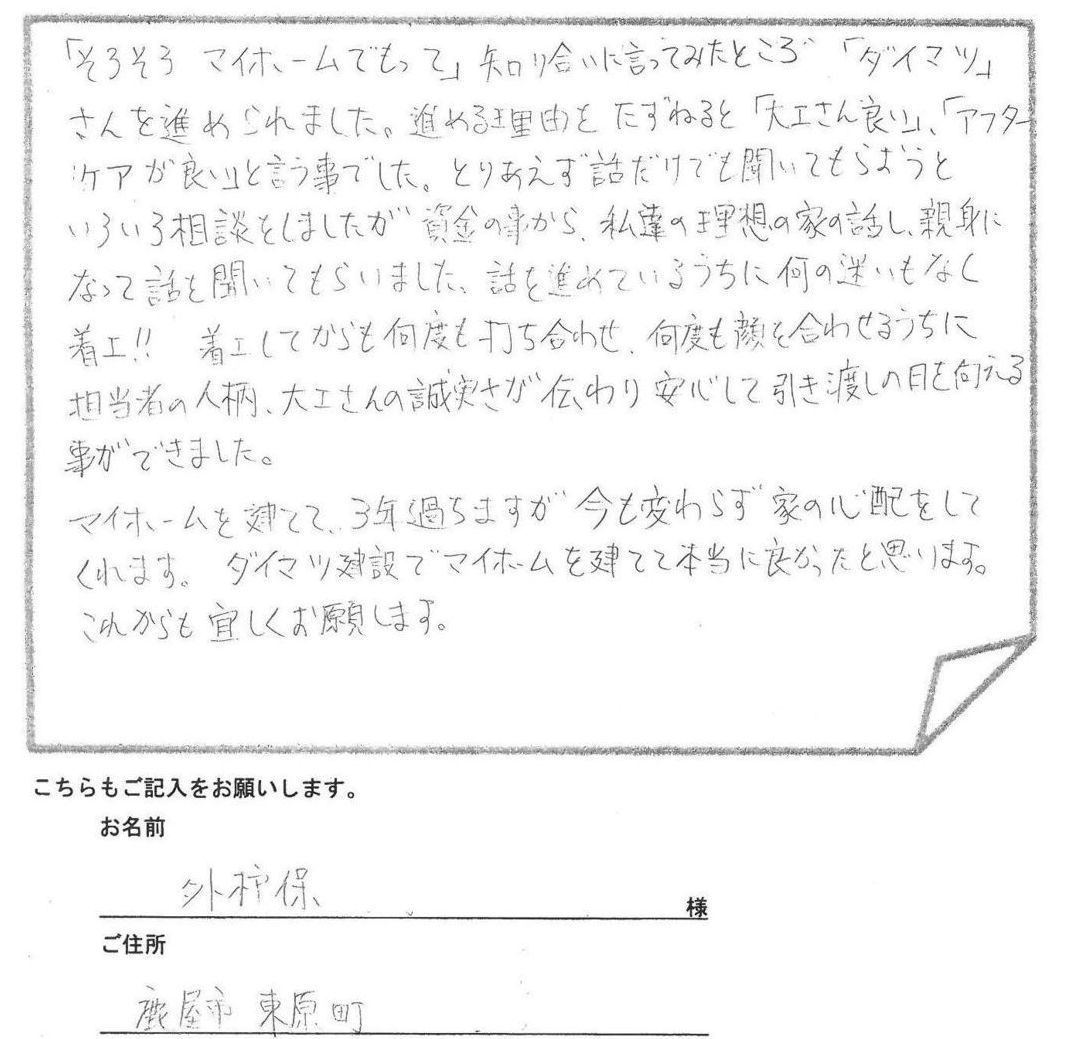 「そろそろ マイホームでもって」知り合いに言ってみたところ 「ダイマツ」
さんを進められました。進める理由をたずねると「大工さん良い」、「アフター
ケアが良い」と言う事でした。とりあえず話だけでも聞いてもらおうと
いろいろ相談をしましたが 資金の事から、私達の理想の家の話し、親身に
なって話を聞いてもらいました、話を進めているうちに何の迷いもなく
着工!! 着工してからも何度も打ち合わせ、何度も顔を合わせるうちに
担当者の人柄、大工さんの誠実さが伝わり 安心して引き渡しの日を向える
事ができました。
マイホームを建てて、3年過ちますが 今も変わらず 家の心配をして
くれます。 ダイマツ建設でマイホームを建てて本当に良かったと思います。
これからも 宜しくお願します。
こちらもご記入をお願いします。
お名前
保 様
ご住所
鹿屋市 東原町